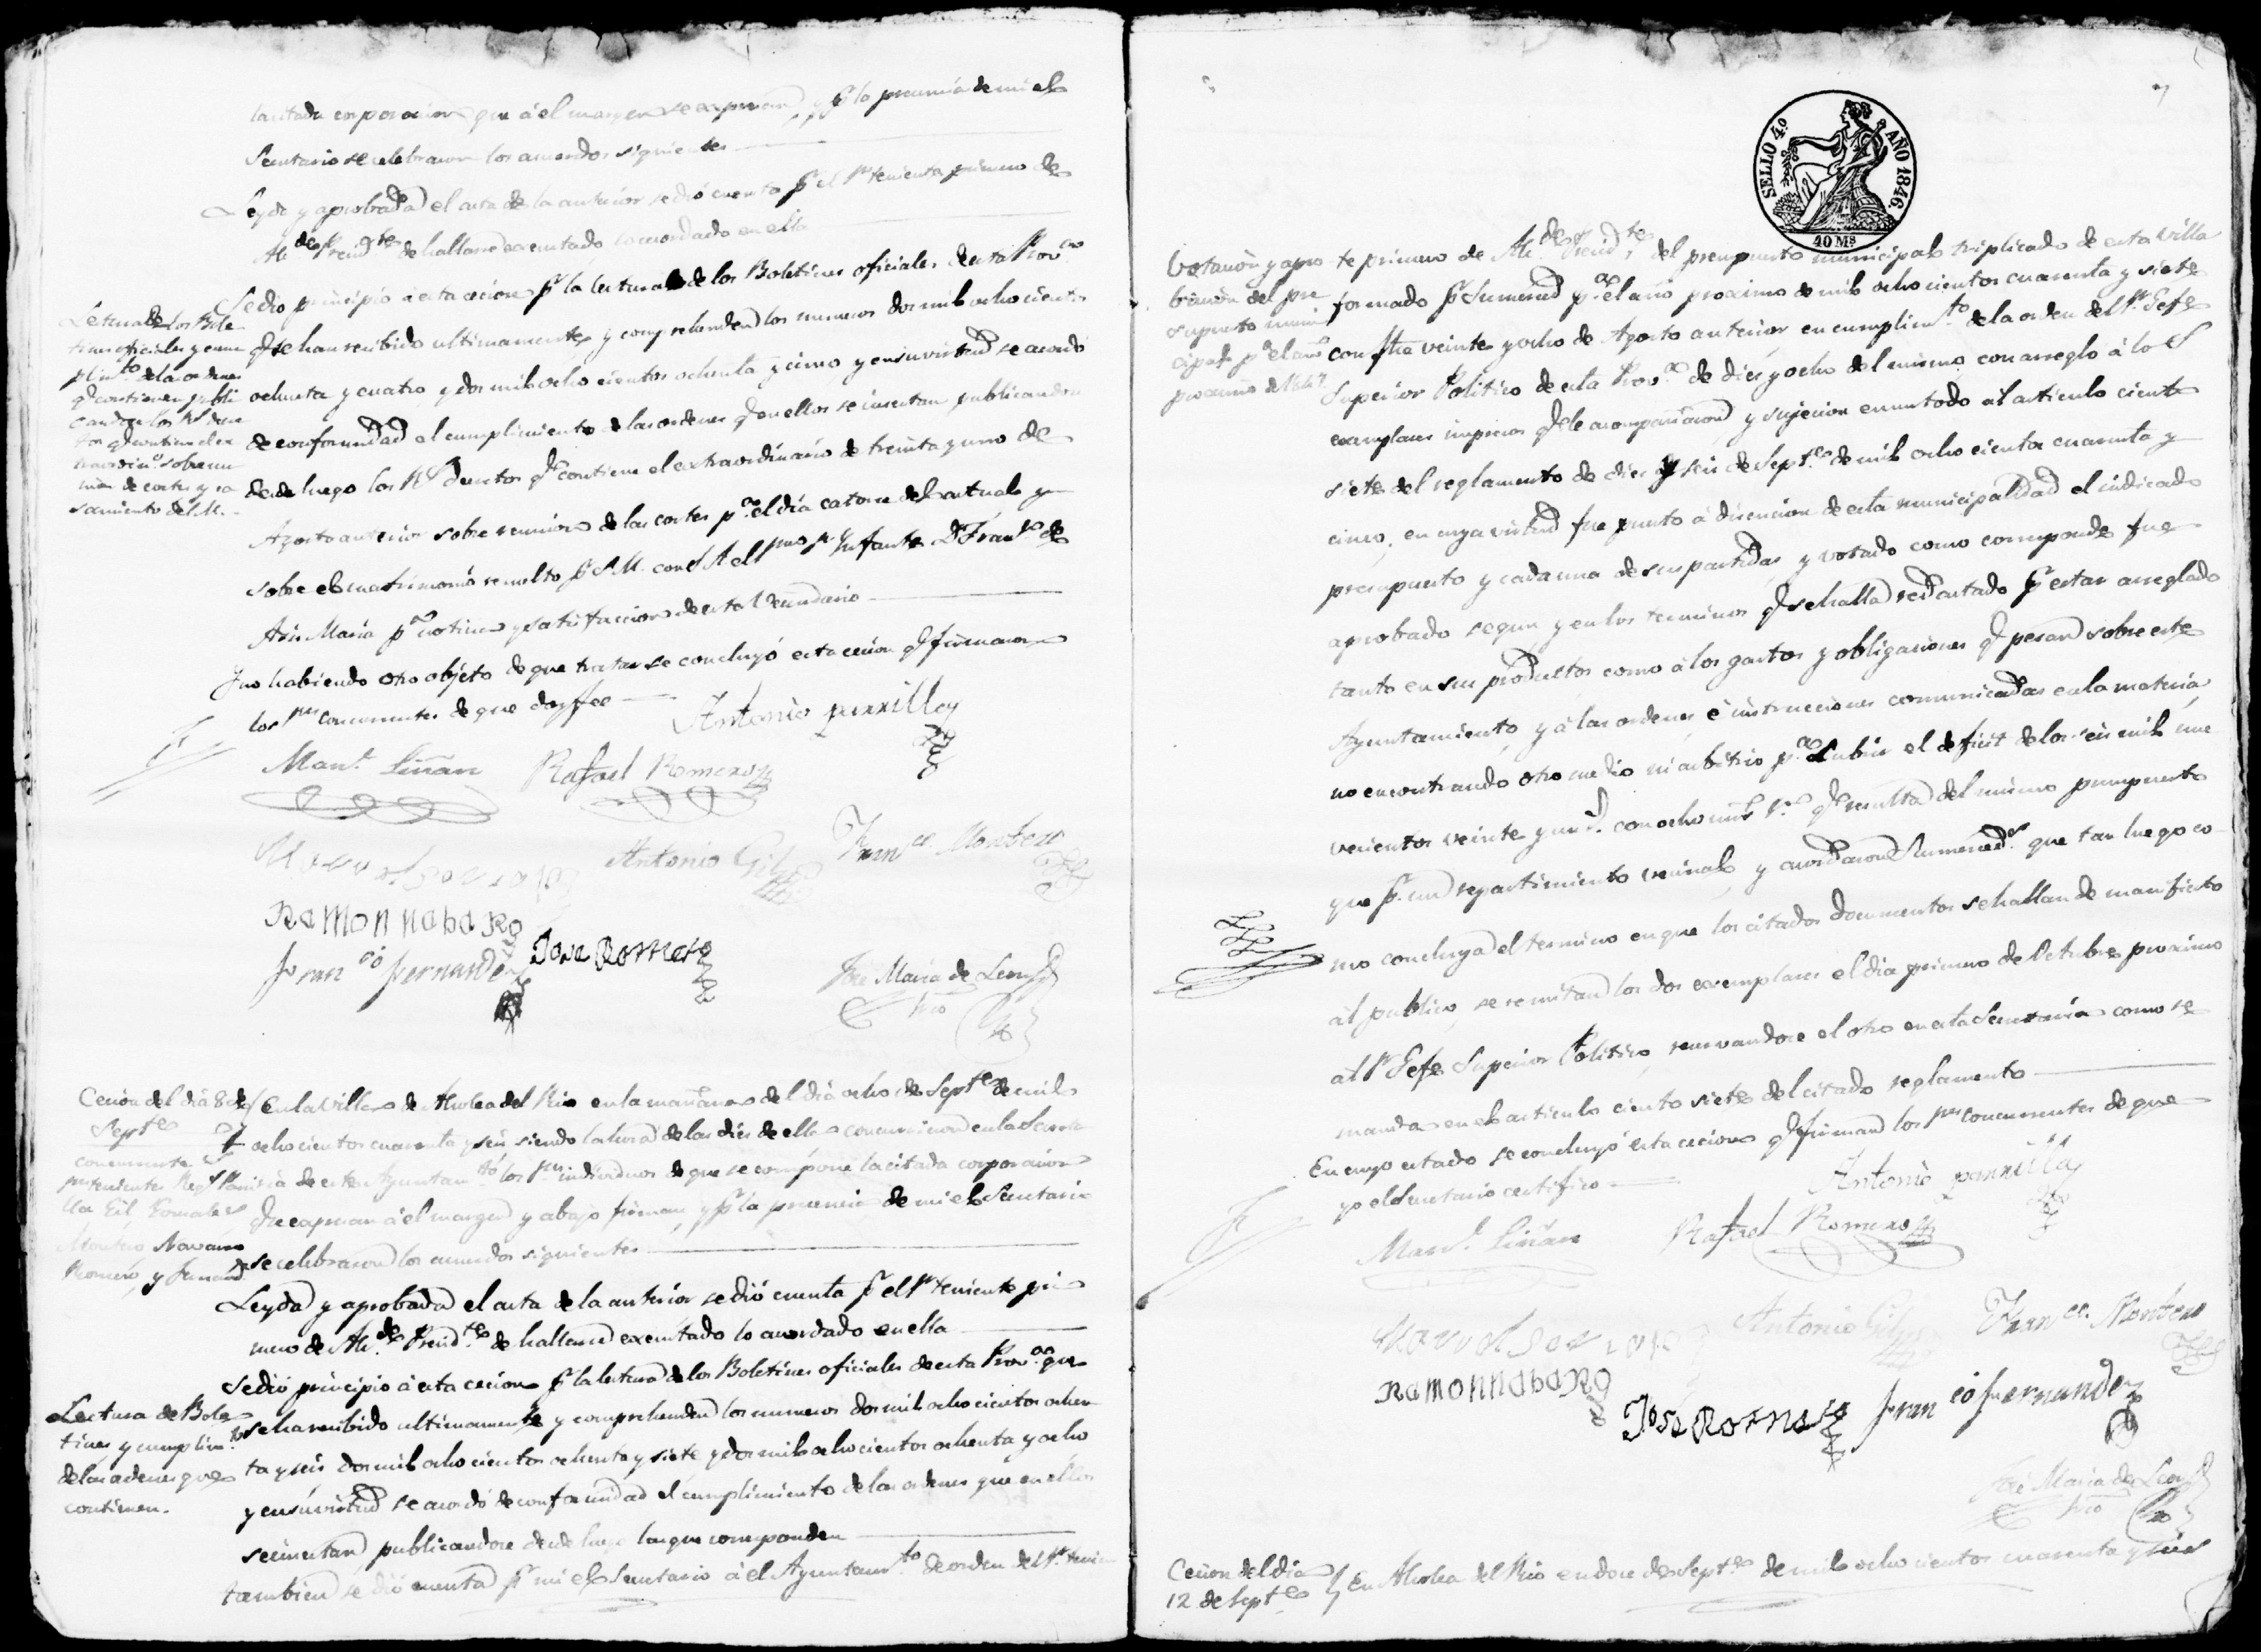 la citada corporacion que á el margen se expresan, y pr la presencia de mi el
Secretario se celebraron los acuerdos siguientes
Leyda y aprobada el acta de la anterior se dió cuenta pr el Sr teniente primero de
Ale de Presidte de hallarse executado lo acordado en ella
Letura de los Bole
tines oficiales y cum
plimto de las ordenes
qe contienen publi
candose los Rs decre
tos qe contiene el ex
traordino sobre reu
nion de cortes y ca
samiento de S.M.
Se dio principio á esta cecion pr la lectura de los Boletines oficiales de esta Prova
qe se han recibido ultimamente y comprehenden los numeros dos mil ocho cientos
ochenta y cuatro y dos mil ocho cientos ochenta y cinco y en su virtud se acordó
de conformidad el cumplimiento de las ordenes qe en ellos se incertan publicandose
desde luego los Rs Decretos qe contiene el extraordinario de treinta y uno de
Agosto anterior sobre reunion de las cortes pa el dia catorce del actual y
sobre el matrimonio resuelto pr S.M. con S.A. el Smo Sr Ynfante Dn Franco de
Asis Maria pa noticia y satisfaccion de este Vecindario
Y no habiendo otro objeto de que tratar se concluyó esta cecion qe firmaron
los Sres concurrentes de que doy fee
Antonio parrilla
Manl Liñan
Rafael Romero
Antonio Gil
Franco Montero
Ramon nabaro
Franco fernandez
Jose Romero
Jose Maria de Leon
Srio
Cecion del dia 8 de
Septe
concurrente Sres
pr teniente Regr Parri
lla Gil Gonzalez
Montero Navarro
Romero, y Fernandz
En la Villa de Alcolea del Rio en la mañana del dia ocho de Septe de mil
ocho cientos cuarenta y seis siendo la hora de las diez de ella concurrieron en la Secreta
ria de este Ayuntamto los Sres individuos de que se compone la citada corporacion
que expresan á el margen y abajo firman, y pr la presencia de mi el Secretario
se celebraron los acuerdos siguientes
Leyda y aprobada el acta de la anterior se dió cuenta pr el Sr teniente pri
mero de Ale de Presidte de hallarse executado lo acordado en ella
Lectura de Bole
tines y cumplimto
de las ordenes que
contienen.
Se dió principio á esta cecion pr la lectura de los Boletines oficiales de esta Prova que
se ha recibido ultimamente y comprehenden los numeros dos mil ocho cientos ochen
ta y seis dos mil ocho cientos ochenta y siete y dos mil ocho cientos ochenta y ocho
y en su virtud se acordó de conformidad el cumplimiento de las ordenes que en ellos
se incertan, publicandose desde luego las que corresponden
tambien se dió cuenta pr mi el Secretario á el Ayuntamto de orden del Sr tenien
7
SELLO 4.º
AÑO 1846.
40 Ms
Votacion y apro
bacion del pre
supuesto muni
cipal pa el año
proximo de 1847.
te primero de Ale de Presidte, del presupuesto municipal triplicado de esta villa
formado pr Sumerced pa el año proximo de mil ocho cientos cuarenta y siete
con fha veinte y ocho de Agosto anterior, en cumplimto de la orden del Sr Gefe
Superior Politico de esta Prova de diez y ocho del mismo, con arreglo á los
exemplares impresos qe le acompañaron y sujecion en un todo al articulo ciento
siete del reglamento de diez y seis de Septe de mil ocho cientos cuarenta y
cinco, en cuya virtud fue puesto á discucion de esta municipalidad el indicado
presupuesto y cada una de sus partidas, y votado como corresponde fue
aprobado segun y en los terminos qe se halla redactado pr estar arreglado
tanto en sus productos como á los gastos y obligaciones qe pesan sobre este
Ayuntamiento, y á las ordenes é instrucciones comunicadas en la materia
no encontrando otro medio ni arbitrio pa cubrir el deficit de los seis mil nue
vecientos veinte y un rs. con ocho mrs qe resulta del mismo presupuesto
que pr un repartimiento vecinal, y acordaron Sumerceds que tan luego co
mo concluya el termino en que los citados documentos se hallan de manifiesto
al publico, se remitan los dos exemplares el dia primero de Octubre proximo
al Sr Gefe Superior Politico, reservandose el otro en esta Secretaria como se
manda en el articulo ciento siete del citado reglamento
En cuyo estado se concluyó esta cecion qe firman los Sres concurrentes de que
yo el Secretario certifico
Antonio parrilla
Manl Liñan
Rafael Romero
Antonio Gil
Franco Montero
Ramon nabaro
Jose Romero
Franco fernandez
Jose Maria de Leon
Srio
Cecion del dia
12 de Septe
En Alcolea del Rio en doce de Septe de mil ocho cientos cuarenta y seis